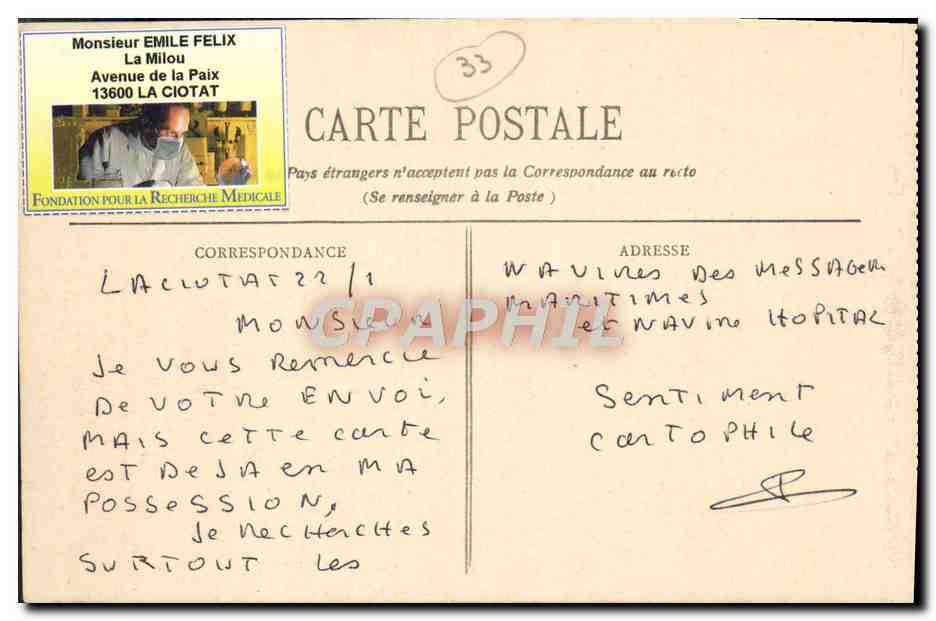 Monsieur EMILE FELIX
La Milou
Avenue de la Paix
13600 LA CIOTAT
FONDATION POUR LA RECHERCHE MEDICALE
33
CARTE POSTALE
Pays étrangers n'acceptent pas la Correspondance au recto
(Se renseigner à la Poste)
CORRESPONDANCE
LACIOTAT 22/1
MONSIEUR
Je VOUS Remercie
De VOTRE ENVOI,
MAIS CETTE carte
est DEJA en MA
POSSESSION,
Je RECHERCHES
SURTOUT Les
ADRESSE
NAVIRES Des MESSAGERI
MARITIMES
et NAVIRE HOPITAL
SENTIMENT
CARTOPHILE
GRAPHIL